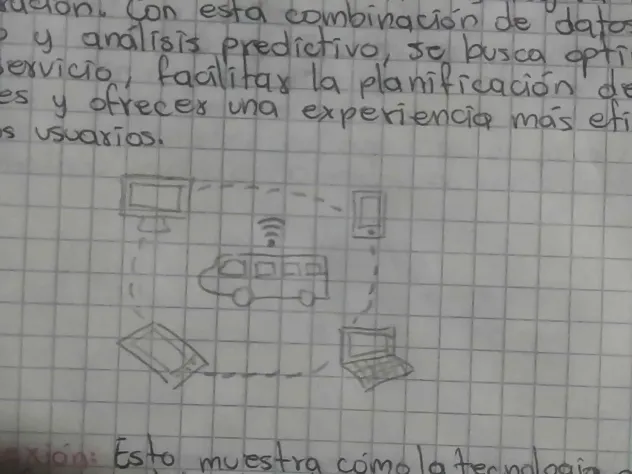 Con esta combinación de datos
y análisis predictivo, se busca
servicio, facilitar la planificación de
es y ofrecer una experiencia más
usuarios.
Esto muestra cómo la tecnología